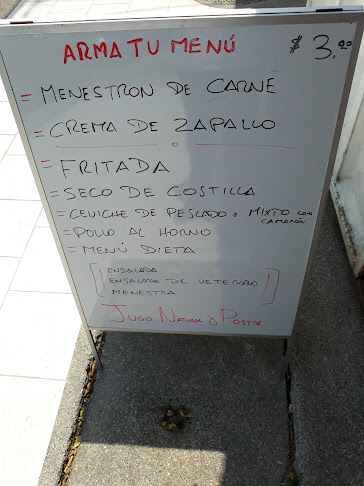 ARMA TU MENÚ $3.00
= MENESTRON DE CARNE
= CREMA DE ZAPALLO
o
= FRITADA
= SECO DE COSTILLA
= CEVICHE DE PESCADO o MIXTO CON CAMARÓN
= POLLO AL HORNO
= MENÚ DIETA
ENSALADA
ENSALADA DE VETERABA
MENESTRA
JUGO NATURAL y POSTRE